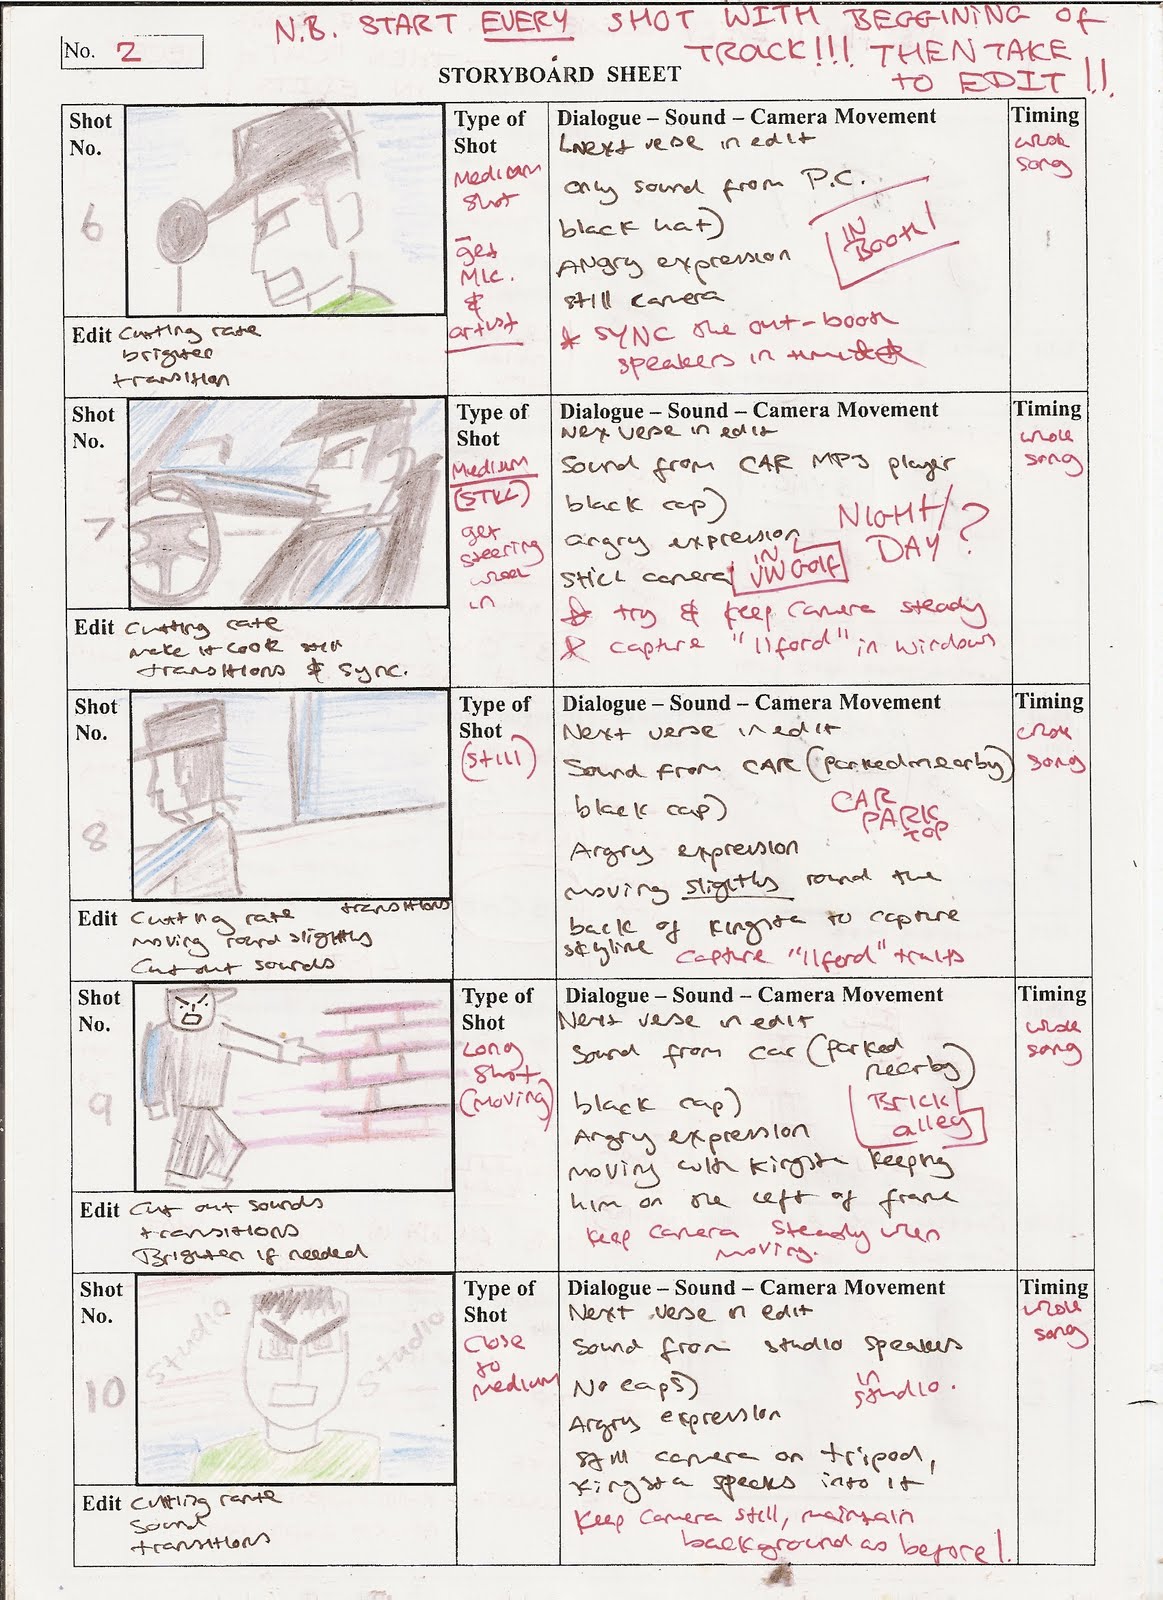 N.B. START EVERY SHOT WITH BEGGINING OF
TRACK!!! THEN TAKE
TO EDIT!!
No. 2
STORYBOARD SHEET
Shot
No.
6
Type of
Shot
Medium
shot
- get
Mic.
&
artist
Dialogue – Sound – Camera Movement
Next verse in edit
only sound from P.C.
black hat)
Angry expression
still camera
IN
BOOTH!
* SYNC the out-booth
speakers in
Timing
whole
song
Edit Cutting rate
brighter
transition
Shot
No.
7
Type of
Shot
Medium
(STILL)
get
steering
wheel
in
Dialogue – Sound – Camera Movement
Next verse in edit
Sound from CAR MP3 player
black cap)
angry expression
still camera
IN
VW Golf
NIGHT/
DAY?
* try & keep camera steady
* capture "Ilford" in windows
Timing
whole
song
Edit Cutting rate
make it look still
transitions & sync.
Shot
No.
8
Type of
Shot
(still)
Dialogue – Sound – Camera Movement
Next verse in edit
Sound from CAR (parked nearby)
black cap)
CAR
PARK
TOP
Angry expression
moving slightly round the
back of Kingsta to capture
skyline capture "Ilford" traits
Timing
whole
song
Edit Cutting rate transitions
moving round slightly
Cut out sounds
Shot
No.
9
Type of
Shot
Long
shot
(moving)
Dialogue – Sound – Camera Movement
Next verse in edit
Sound from car (parked
nearby)
black cap)
Brick
alley
Angry expression
moving with Kingsta keeping
him on the left of frame
keep camera steady when
moving.
Timing
whole
song
Edit Cut out sounds
transitions
Brighten if needed
Shot
No.
10
studio
studio
Type of
Shot
Close
to
medium
Dialogue – Sound – Camera Movement
Next verse in edit
Sound from studio speakers
No caps)
in
studio.
Angry expression
still camera on tripod,
Kingsta speaks into it
keep camera still, maintain
background as before!
Timing
whole
song
Edit Cutting rate
sound
transitions